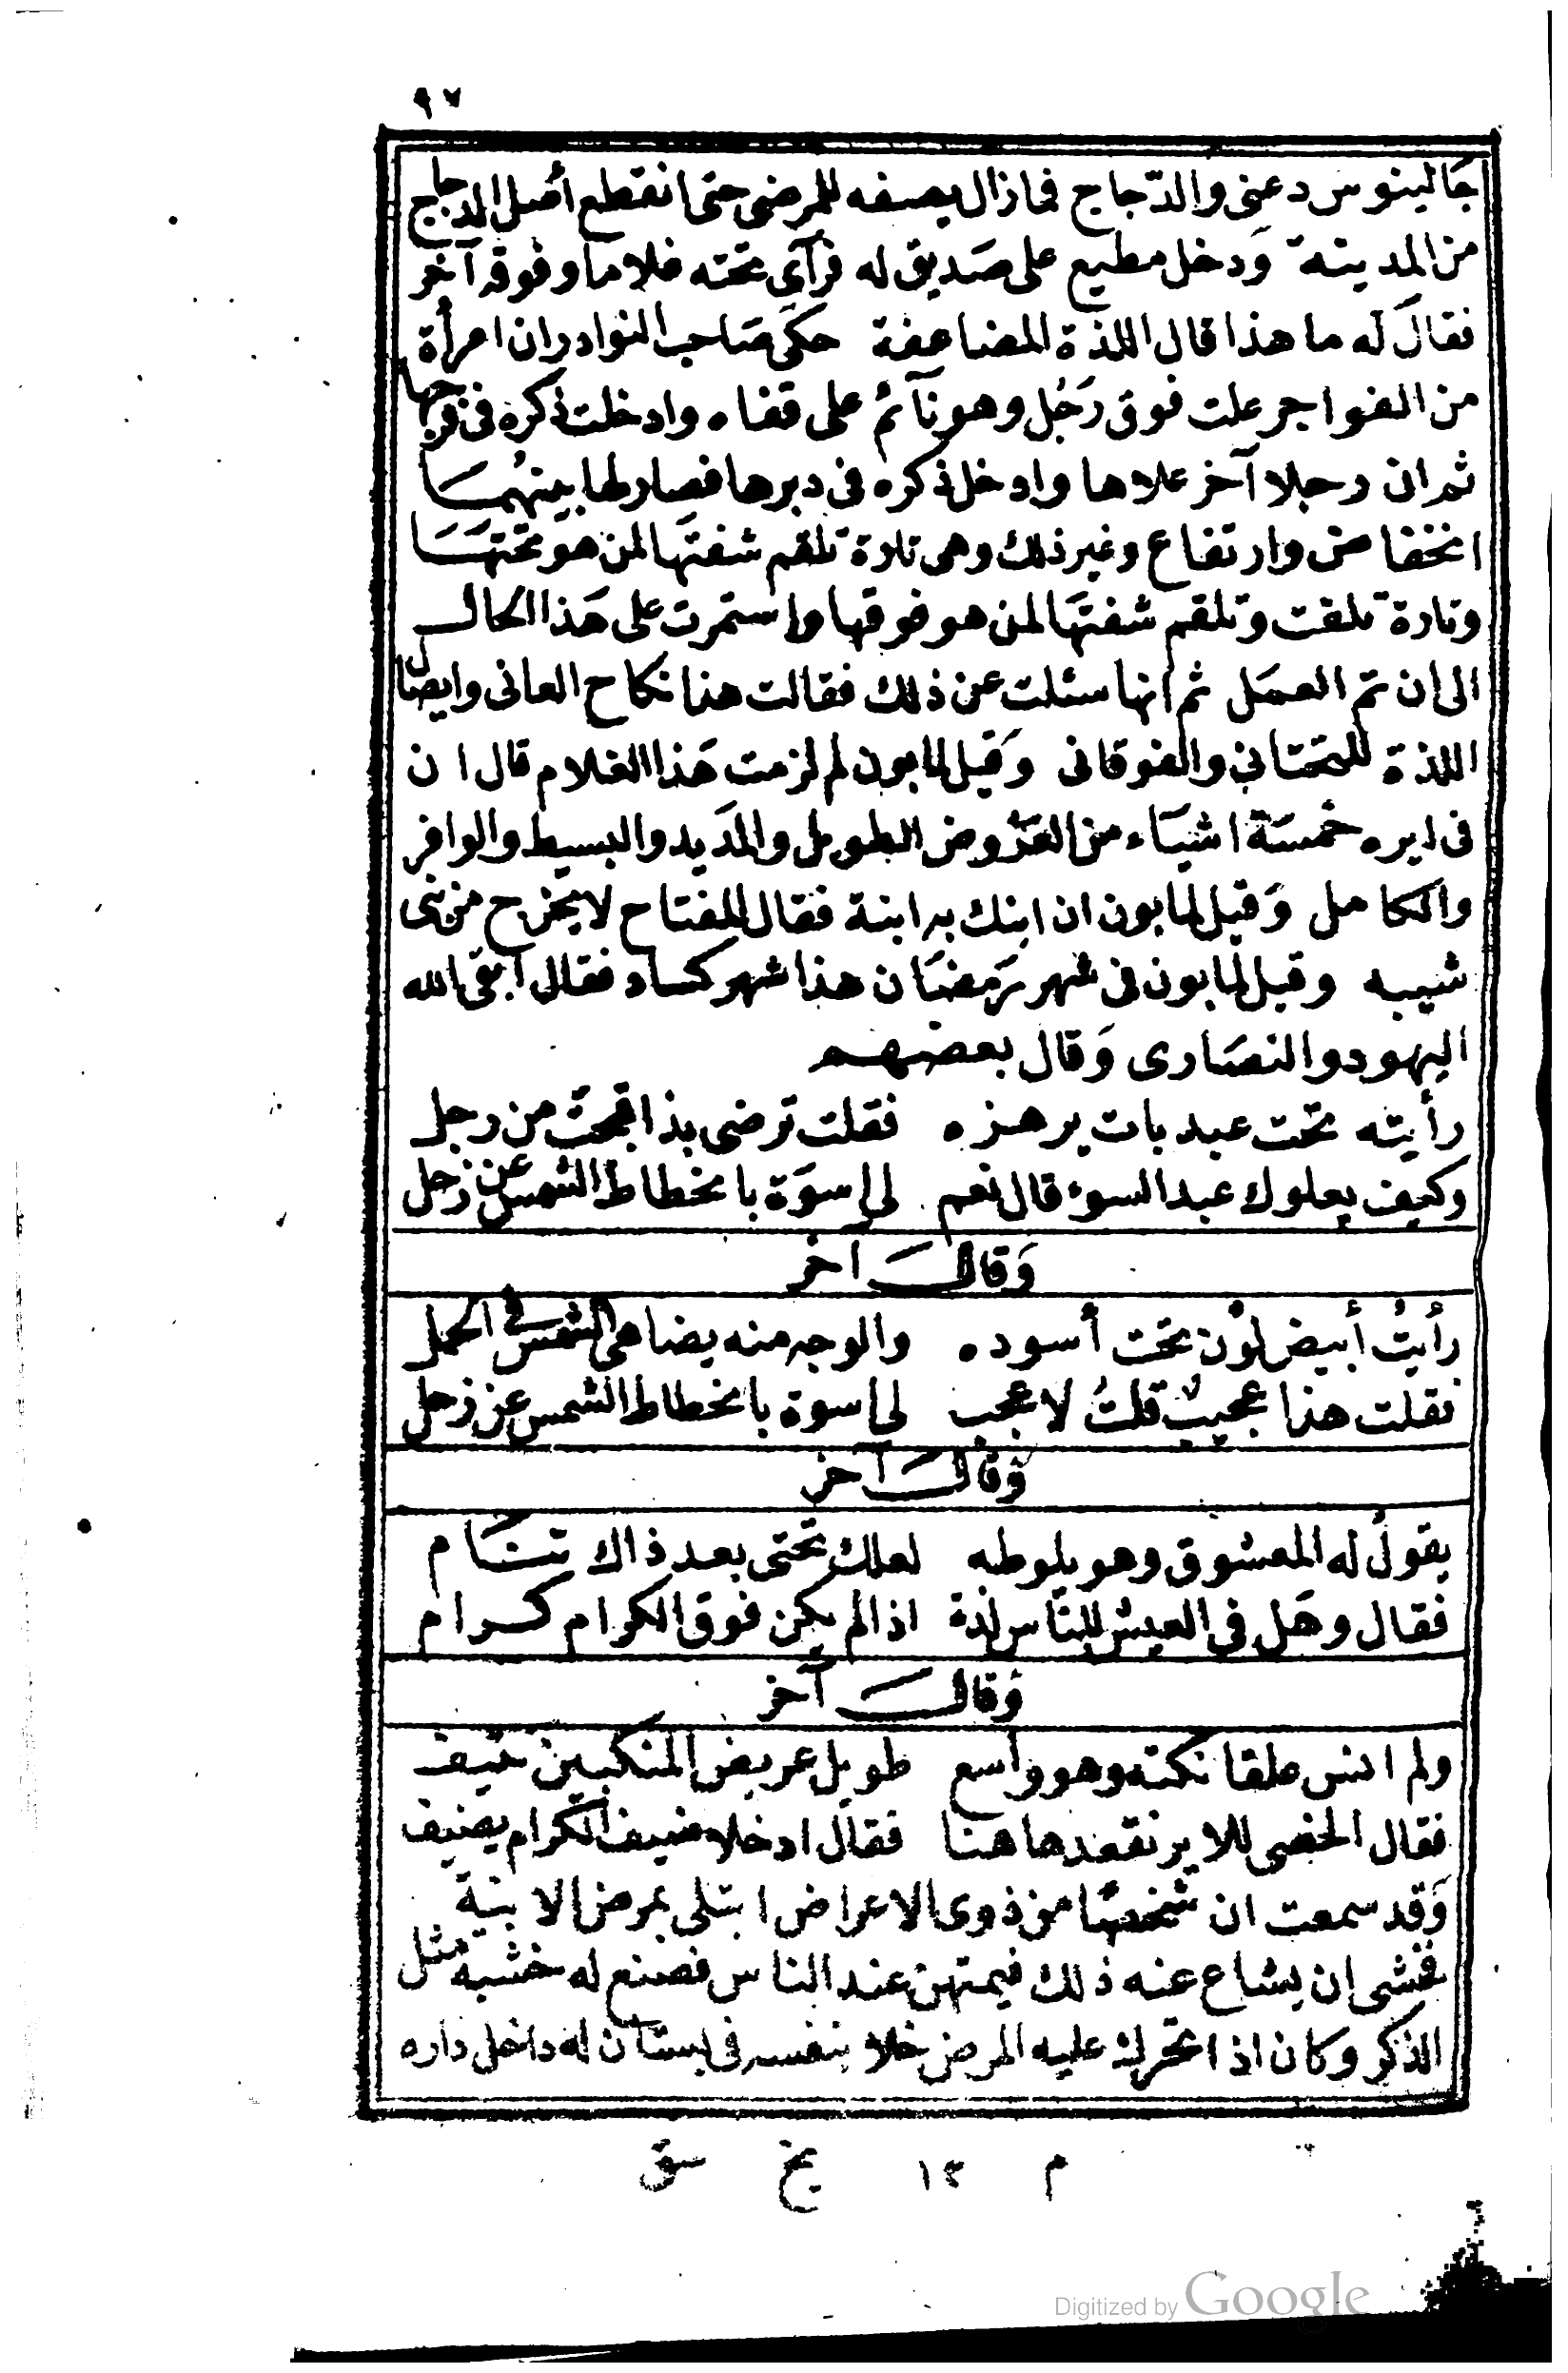 ٩٧
جَالينوس دعنى والدّجاج فمازال يصفه للمرضى حتى انقطع أصل الدجاج
من المدينة وَدخل مطيع على صَديق له فرآى تحته غلاما وفوقه آخر
فقالَ له ما هذا قال اللذة المضاعفة حكى صَاحب النوادر ان امرأة
من الفواجر علت فوق رَجُل وهو نآئم على قفاه وادخلت ذكره فى فرجها
ثم ان رجلا آخر علاها وادخل ذكره فى دبرها فصار لها بينهمَا
انخفاض وارتفاع وغير ذلك وهى تارة تلقم شفتَها لمن هو تحتهَا
وتارة تلتفت وتلقم شفتَها لمن هو فوقها واستمرت على هَذا الحال
الى ان تم العمَل ثم انها سئلت عن ذلك فقالت هذا نكاح العانى وايصال
اللذة للتحتانى والفوقانى وَقيل لمابون لم لزمت هَذا الغلام قال ان
فى ايره خمسَة اشيَاء من العَرُوض الطويل والمَديد والبسيط والوافر
والكامل وَقيل لمابون ان ابنك به ابنة فقال المفتاح لا يخرج من بنى
شيبه وقيل لمابون فى شهر رَمضَان هذا شهر كساد فقال ابقى الله
اليهود والنصَارى وَقال بعضهم
رأيته تحت عبد بات يرهزه فقلت ترضى بذا قبحت من رجل
وكيف يعلوك عبد السوء قال نعم لى اسوَة بانحطاط الشمس عن زحل
وَقالَ آخر
رأيتُ أبيض لوْن تحت أسوده والوجه منه يضاهى الشمس فى الحمل
فقلت هذا عجيبٌ قلتُ لا عجب لى اسوة بانحطاط الشمس عن زحل
وَقالَ آخر
يقولُ له المعشوق وهو يلوطه لعلك تحتى بعد ذاك تنَام
فقال وهَل فى العيش للنّاس لذة اذا لم يكن فوق الكرام كرام
وَقالَ آخر
ولم انس علقا نكته وهو واسع طويل عريض المنكبين خيف
فقال الخصى للاير نقعد هاهنا فقال ادخلا ضيف الكرام يضيف
وَقد سمعت ان شخصًا من ذوى الاعراض ابتلى بمرض الابنة
فخشى ان يشاع عنه ذلك فيمتهن عند الناس فصنع له خشبة مثل
الذكر وكان اذا تحرك عليه المرض خلا بنفسه فى بستان له داخل داره
م ١٣ نخ سق
Digitized by Google